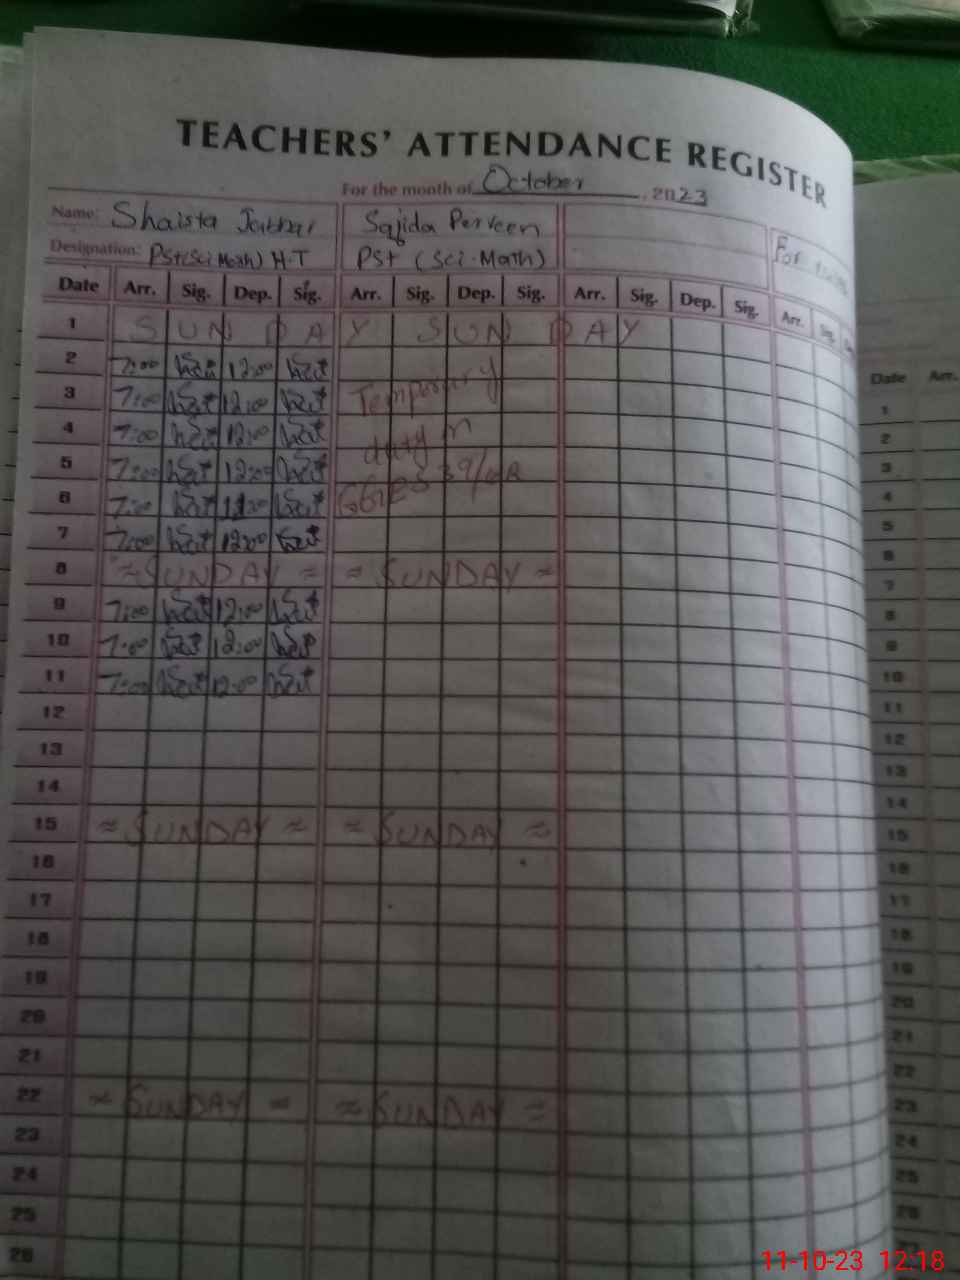 TEACHERS' ATTENDANCE REGISTER
For the month of October, 2023
Name: Shaista Sajida Perveen
Designation: PST (Sci Math) H.T PST (Sci-Math) For
Date Arr. Sig. Dep. Sig. Arr. Sig. Dep. Sig. Arr. Sig. Dep. Sig. Arr. Sig.
1 SUNDAY SUNDAY
2 7:00 12:00
3 7:00 12:00 Temporary
4 7:00 12:00 duty in
5 7:00 12:00
6 7:00 12:00
7 7:00 12:00
8 ≈ SUNDAY ≈ ≈ SUNDAY ≈
9 7:00 12:00
10 7:00 12:00
11 7:00 12:00
12
13
14
15 ≈ SUNDAY ≈ ≈ SUNDAY ≈
16
17
18
19
20
21
22 ≈ SUNDAY ≈ ≈ SUNDAY ≈
23
24
25
26
Date Arr.
1
2
3
4
5
6
7
8
9
10
11
12
13
14
15
16
17
18
19
20
21
22
23
24
25
26
11-10-23 12:18